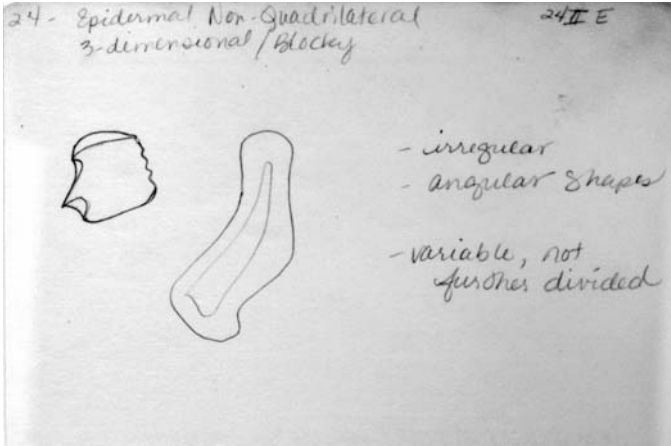 24- Epidermal Non-Quadrilateral 24 II E
3-dimensional/Blocky
- irregular
- angular shapes
- variable, not
further divided